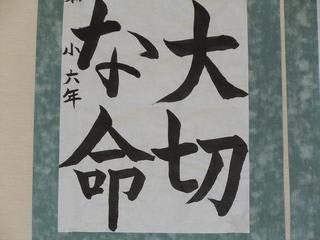 大切
な命
小六年